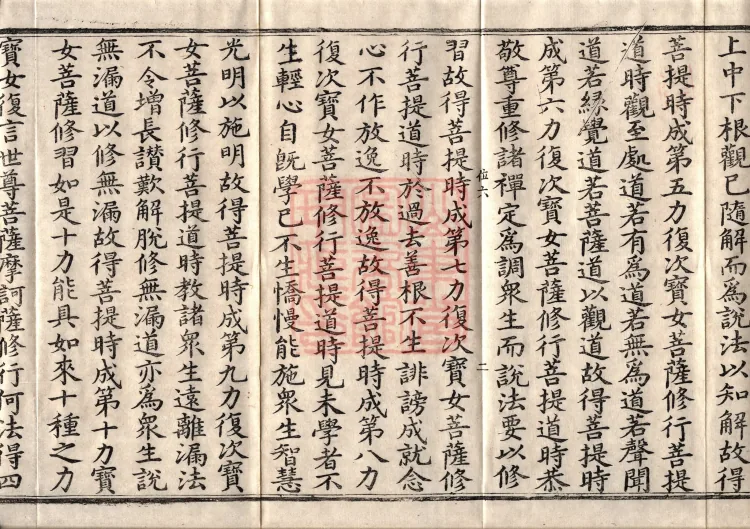 上中下根觀已隨解而爲說法以知解故得
菩提時成第五力復次寶女菩薩修行菩提
道時觀至處道若有爲道若無爲道若聲聞
道若緣覺道若菩薩道以觀道故得菩提時
成第六力復次寶女菩薩修行菩提道時恭
敬尊重修諸禪定爲調衆生而說法要以修
位六
二
習故得菩提時成第七力復次寶女菩薩修
行菩提道時於過去善根不生誹謗成就念
心不作放逸不放逸故得菩提時成第八力
復次寶女菩薩修行菩提道時見未學者不
生輕心自旣學已不生憍慢能施衆生智慧
光明以施明故得菩提時成第九力復次寶
女菩薩修行菩提道時教諸衆生遠離漏法
不令增長讚歎解脫修無漏道亦爲衆生說
無漏道以修無漏故得菩提時成第十力寶
女菩薩修習如是十力能具如來十種之力
寶女復言世尊菩薩摩訶薩修行何法得四